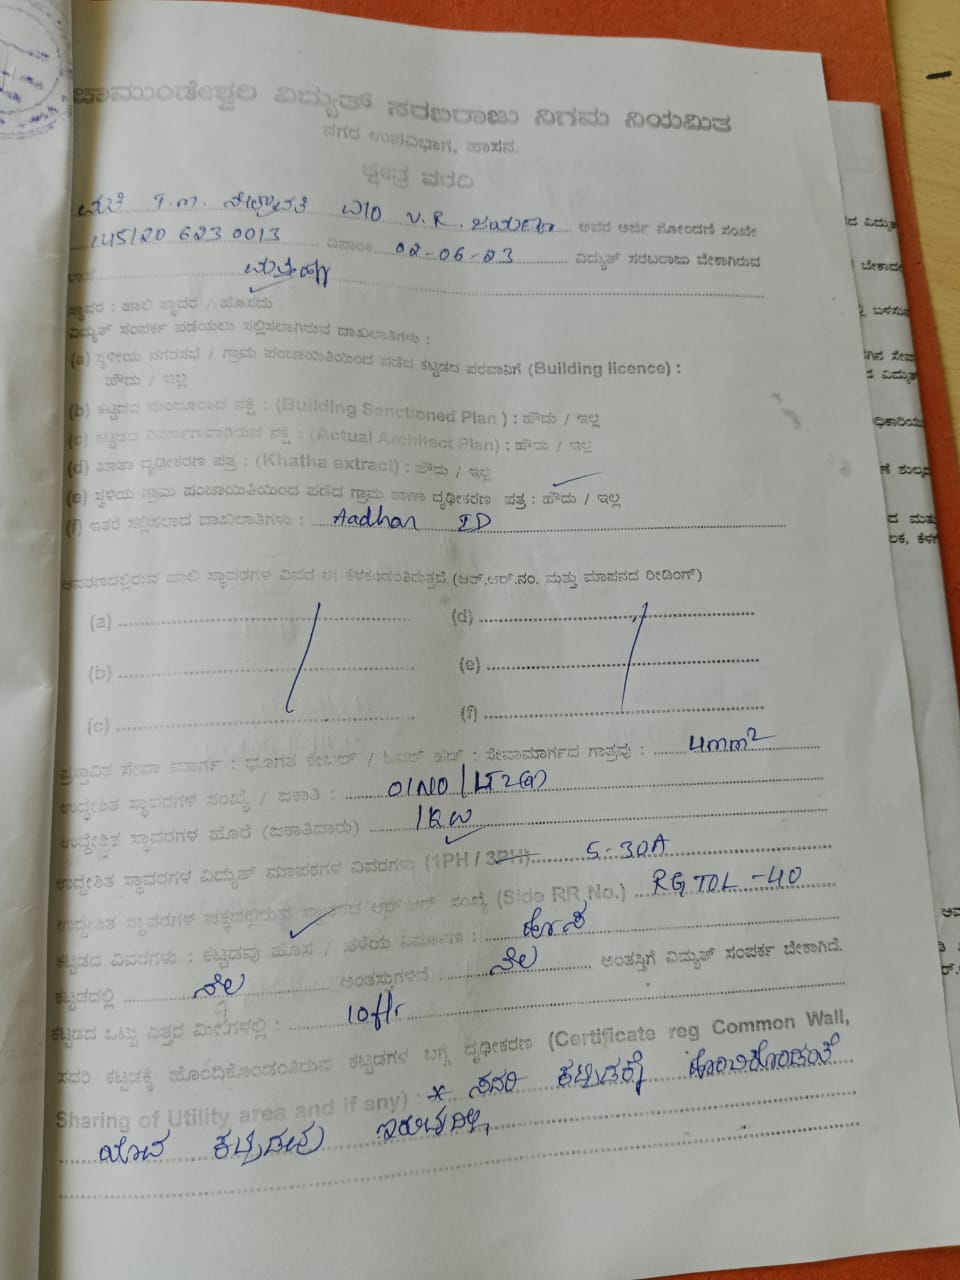 ಚಾಮುಂಡೇಶ್ವರಿ ವಿದ್ಯುತ್ ಸರಬರಾಜು ನಿಗಮ ನಿಯಮಿತ
ನಗರ ಉಪವಿಭಾಗ, ಹಾಸನ.
ಕ್ಷೇತ್ರ ವರದಿ
T.M. W/O V.R. ಅವರ ಅರ್ಜಿ ನೋಂದಣಿ ಸಂಖ್ಯೇ
145120 623 0013 ದಿನಾಂಕ 02-06-23 ವಿದ್ಯುತ್ ಸರಬರಾಜು ಬೇಕಾಗಿರುವ
ಸ್ಥಾವರ : ಹಾಲಿ ಸ್ಥಾವರ / ಹೊಸದು
ವಿದ್ಯುತ್ ಸಂಪರ್ಕ ಪಡೆಯಲು ಸಲ್ಲಿಸಲಾಗಿರುವ ದಾಖಲಾತಿಗಳು :
(a) ಸ್ಥಳೀಯ ನಗರಸಭೆ / ಗ್ರಾಮ ಪಂಚಾಯಿತಿಯಿಂದ ಪಡೆದ ಕಟ್ಟಡದ ಪರವಾನಿಗೆ (Building licence) :
ಹೌದು / ಇಲ್ಲ
(b) ಕಟ್ಟಡದ ಮಂಜೂರಾದ ನಕ್ಷೆ : (Building Sanctioned Plan ) : ಹೌದು / ಇಲ್ಲ
(c) ಕಟ್ಟಡದ ನಿರ್ಮಾಣವಾಗಿರುವ ನಕ್ಷೆ : (Actual Architect Plan) : ಹೌದು / ಇಲ್ಲ
(d) ಖಾತಾ ದೃಢೀಕರಣ ಪತ್ರ : (Khatha extract) : ಹೌದು / ಇಲ್ಲ
(e) ಸ್ಥಳಿಯ ಗ್ರಾಮ ಪಂಚಾಯಿತಿಯಿಂದ ಪಡೆದ ಗ್ರಾಮ ಠಾಣಾ ದೃಢೀಕರಣ ಪತ್ರ : ಹೌದು / ಇಲ್ಲ
(f) ಇತರೆ ಸಲ್ಲಿಸಲಾದ ದಾಖಲಾತಿಗಳು : Aadhar ID
ಆವರಣದಲ್ಲಿರುವ ಹಾಲಿ ಸ್ಥಾವರಗಳ ವಿವರ ಈ ಕೆಳಕಂಡಂತಿರುತ್ತವೆ (ಆರ್.ಆರ್.ನಂ. ಮತ್ತು ಮಾಪನದ ರೀಡಿಂಗ್)
(a) (d)
(b) (e)
(c) (f)
ಪ್ರಸ್ತಾವಿತ ಸೇವಾ ಮಾರ್ಗ : ಭೂಗತ ಕೇಬಲ್ / ಓವರ್ ಹೆಡ್ : ಸೇವಾಮಾರ್ಗದ ಗಾತ್ರವು : 4mm2
ಉದ್ದೇಶಿತ ಸ್ಥಾವರಗಳ ಸಂಖ್ಯೆ / ಜಕಾತಿ : 01NO / LT2(a)
ಉದ್ದೇಶಿತ ಸ್ಥಾವರಗಳ ಹೊರೆ (ಜಕಾತಿವಾರು) 1KW
ಉದ್ದೇಶಿತ ಸ್ಥಾವರಗಳ ವಿದ್ಯುತ್ ಮಾಪಕಗಳ ವಿವರಗಳು (1PH / 3PH) 5-30A
ಉದ್ದೇಶಿತ ಸ್ಥಾವರಗಳ ಪಕ್ಕದಲ್ಲಿರುವ ಸ್ಥಾವರದ ಆರ್.ಆರ್ ಸಂಖ್ಯೆ (Side RR No.) RGTDL-40
ಕಟ್ಟಡದ ವಿವರಗಳು : ಕಟ್ಟಡವು ಹೊಸ / ಹಳೆಯ ನಿರ್ಮಾಣ : ಹೊಸ
ಕಟ್ಟಡದಲ್ಲಿ ನೆಲ ಅಂತಸ್ತುಗಳಿವೆ ನೆಲ ಅಂತಸ್ತಿಗೆ ವಿದ್ಯುತ್ ಸಂಪರ್ಕ ಬೇಕಾಗಿದೆ.
ಕಟ್ಟಡದ ಒಟ್ಟು ಎತ್ತರ ಮೀಟರ್‌ಗಳಲ್ಲಿ : 10ft
ಸದರಿ ಕಟ್ಟಡಕ್ಕೆ ಹೊಂದಿಕೊಂಡಂತಿರುವ ಕಟ್ಟಡಗಳ ಬಗ್ಗೆ ದೃಢೀಕರಣ (Certificate reg Common Wall,
Sharing of Utility area and if any) : * ಸದರಿ ಕಟ್ಟಡಕ್ಕೆ ಹೊಂದಿಕೊಂಡಂತೆ
ಯಾವ ಕಟ್ಟಡವು ಇರುವುದಿಲ್ಲ